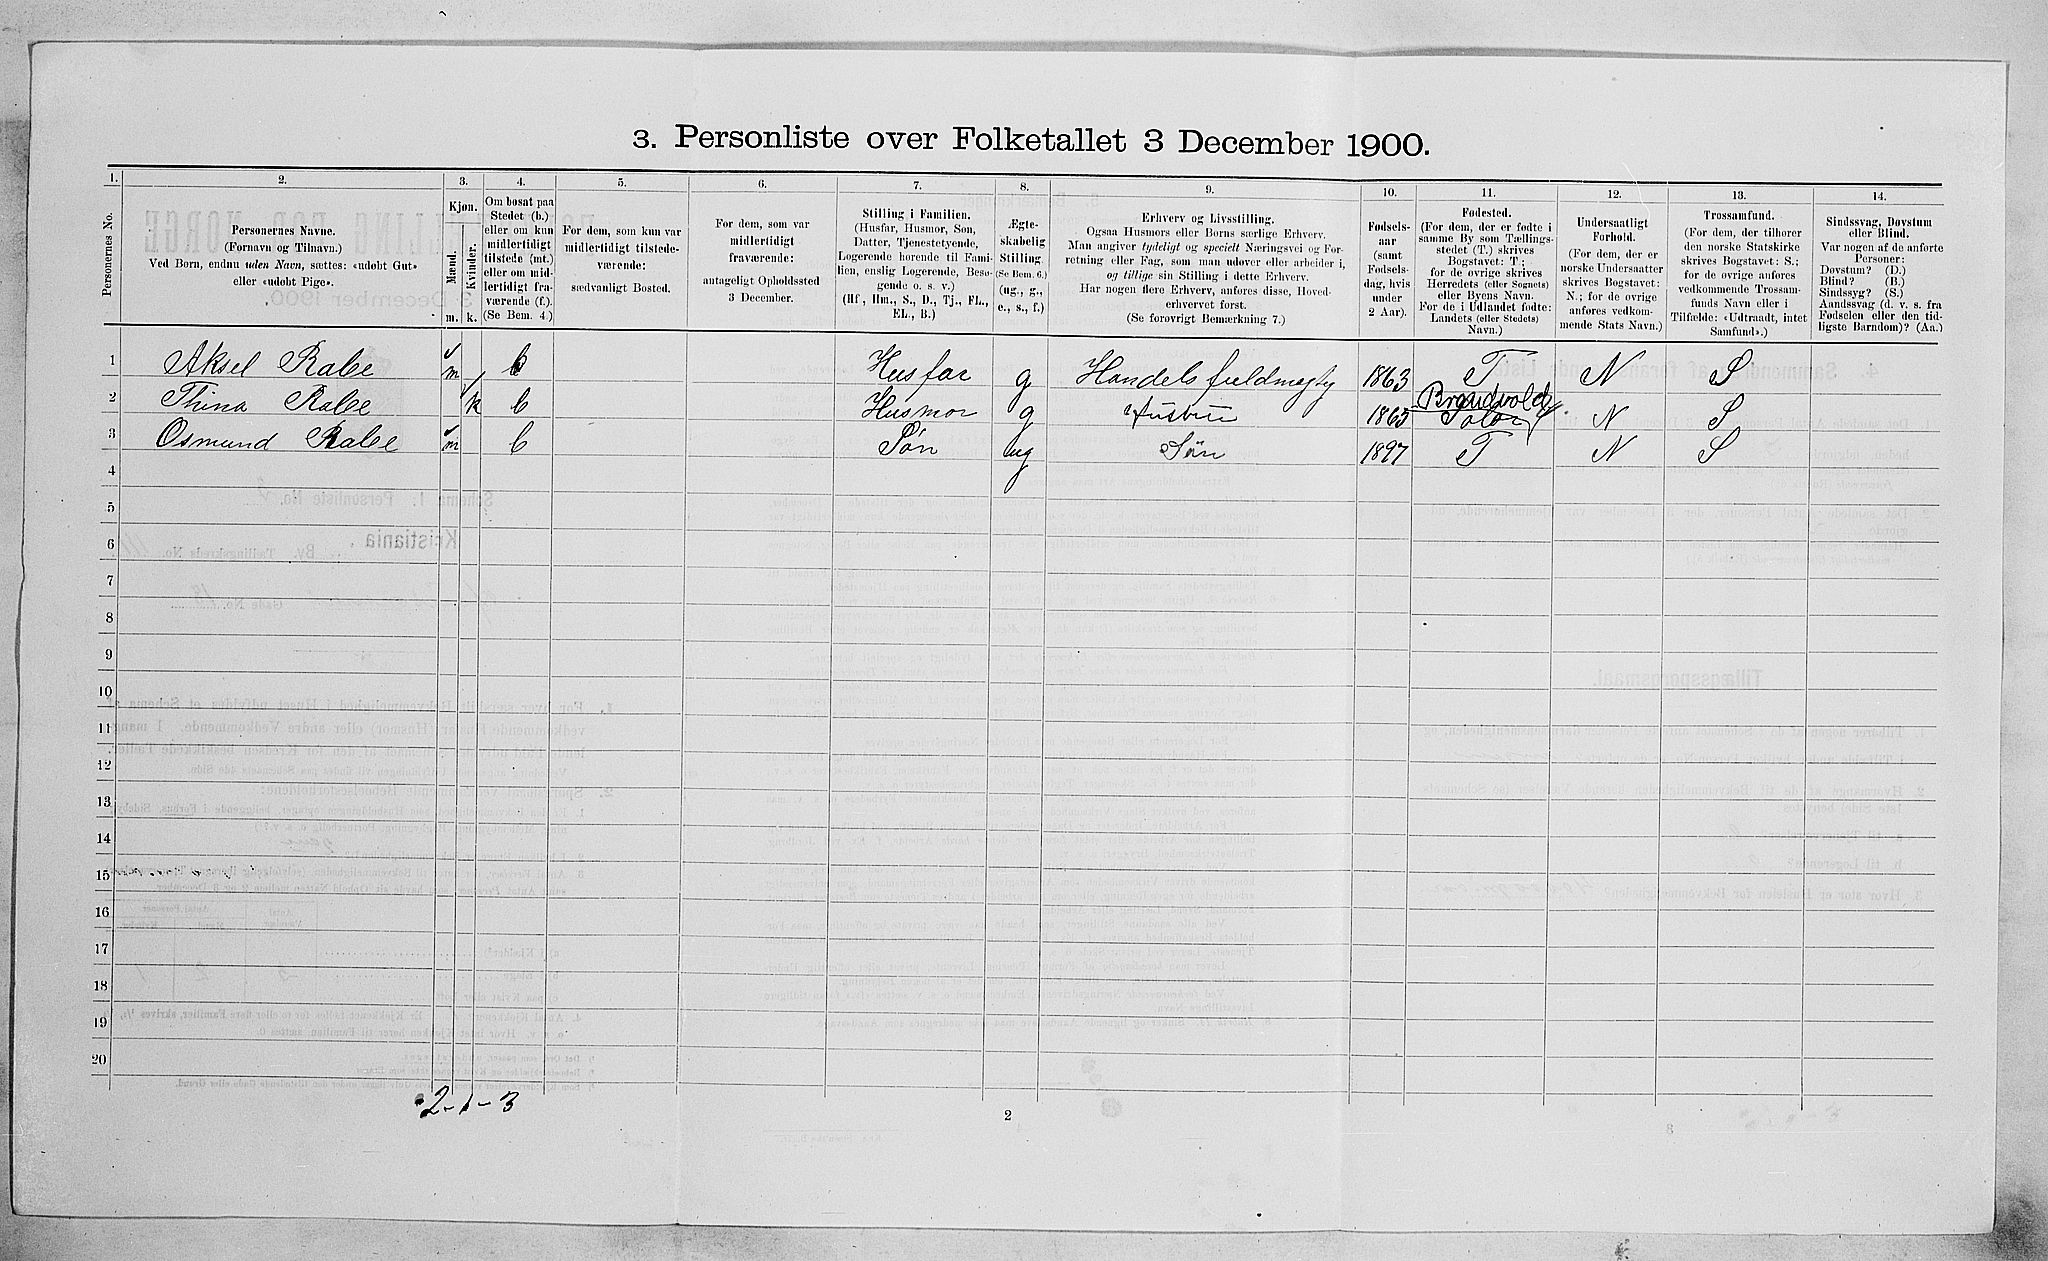 3. Personliste over Folketallet 3 December 1900.
1. 2. 3. 4. 5. 6. 7. 8. 9. 10. 11. 12. 13. 14.
Personernes No.
Personernes Navne.
(Fornavn og Tilnavn.)
Ved Børn, endnu uden Navn, sættes: «udøbt Gut»
eller «udøbt Pige».
Kjøn.
Mænd.
Kvinder.
m. k.
Om bosat paa
Stedet (b.)
eller om kun
midlertidigt
tilstede (mt.)
eller om mid-
lertidigt fra-
værende (f.).
(Se Bem. 4.)
For dem, som kun var
midlertidigt tilstede-
værende:
sædvanligt Bosted.
For dem, som var
midlertidigt
fraværende:
antageligt Opholdssted
3 December.
Stilling i Familien.
(Husfar, Husmor, Søn,
Datter, Tjenestetyende,
Logerende hørende til Fami-
lien, enslig Logerende, Besø-
gende o. s. v.)
(Hf., Hm., S., D., Tj., FL.,
EL., B.)
Ægte-
skabelig
Stilling.
(Se Bem. 6.)
(ug., g.,
e., s., f.)
Erhverv og Livsstilling.
Ogsaa Husmors eller Børns særlige Erhverv.
Man angiver tydeligt og specielt Næringsvei og For-
retning eller Fag, som man udøver eller arbeider i,
og tillige sin Stilling i dette Erhverv.
Har nogen flere Erhverv, anføres disse, Hoved-
erhvervet først.
(Se forøvrigt Bemærkning 7.)
Fødsels-
aar
(samt
Fødsels-
dag, hvis
under
2 Aar).
Fødested.
(For dem, der er fødte i
samme By som Tællings-
stedet (T.) skrives
Bogstavet: T;
for de øvrige skrives
Herredets (eller Sognets)
eller Byens Navn.
For de i Udlandet fødte:
Landets (eller Stedets)
Navn.)
Undersaatligt
Forhold.
(For dem, der er
norske Undersaatter
skrives Bogstavet:
N.; for de øvrige
anføres vedkom-
mende Stats Navn.)
Trossamfund.
(For dem, der tilhører
den norske Statskirke
skrives Bogstavet: S.;
for de øvrige anføres
vedkommende Trossam-
funds Navn eller i
Tilfælde: «Udtraadt, intet
Samfund».)
Sindssvag, Døvstum
eller Blind.
Var nogen af de anførte
Personer:
Døvstum? (D.)
Blind? (B.)
Sindssyg? (S.)
Aandssvag (d. v. s. fra
Fødselen eller den tid-
ligste Barndom)? (Aa.)
1 Aksel Rabe m b Husfar g Handelsfuldmægtig 1863 T N S
2 Thina Rabe k b Husmor g Husbru 1865 Brandvold Solør N S
3 Osmund Rabe m b Søn ug Søn 1897 T N S
4
5
6
7
8
9
10
11
12
13
14
15
16
17
18
19
20
2-1-3
2